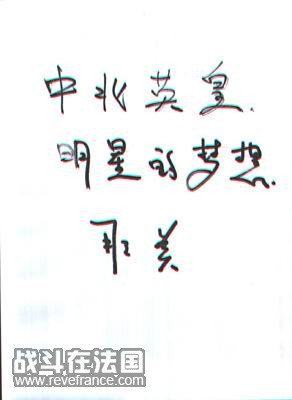 中北英皇.
明星的梦想.
战斗在法国
www.revefrance.com